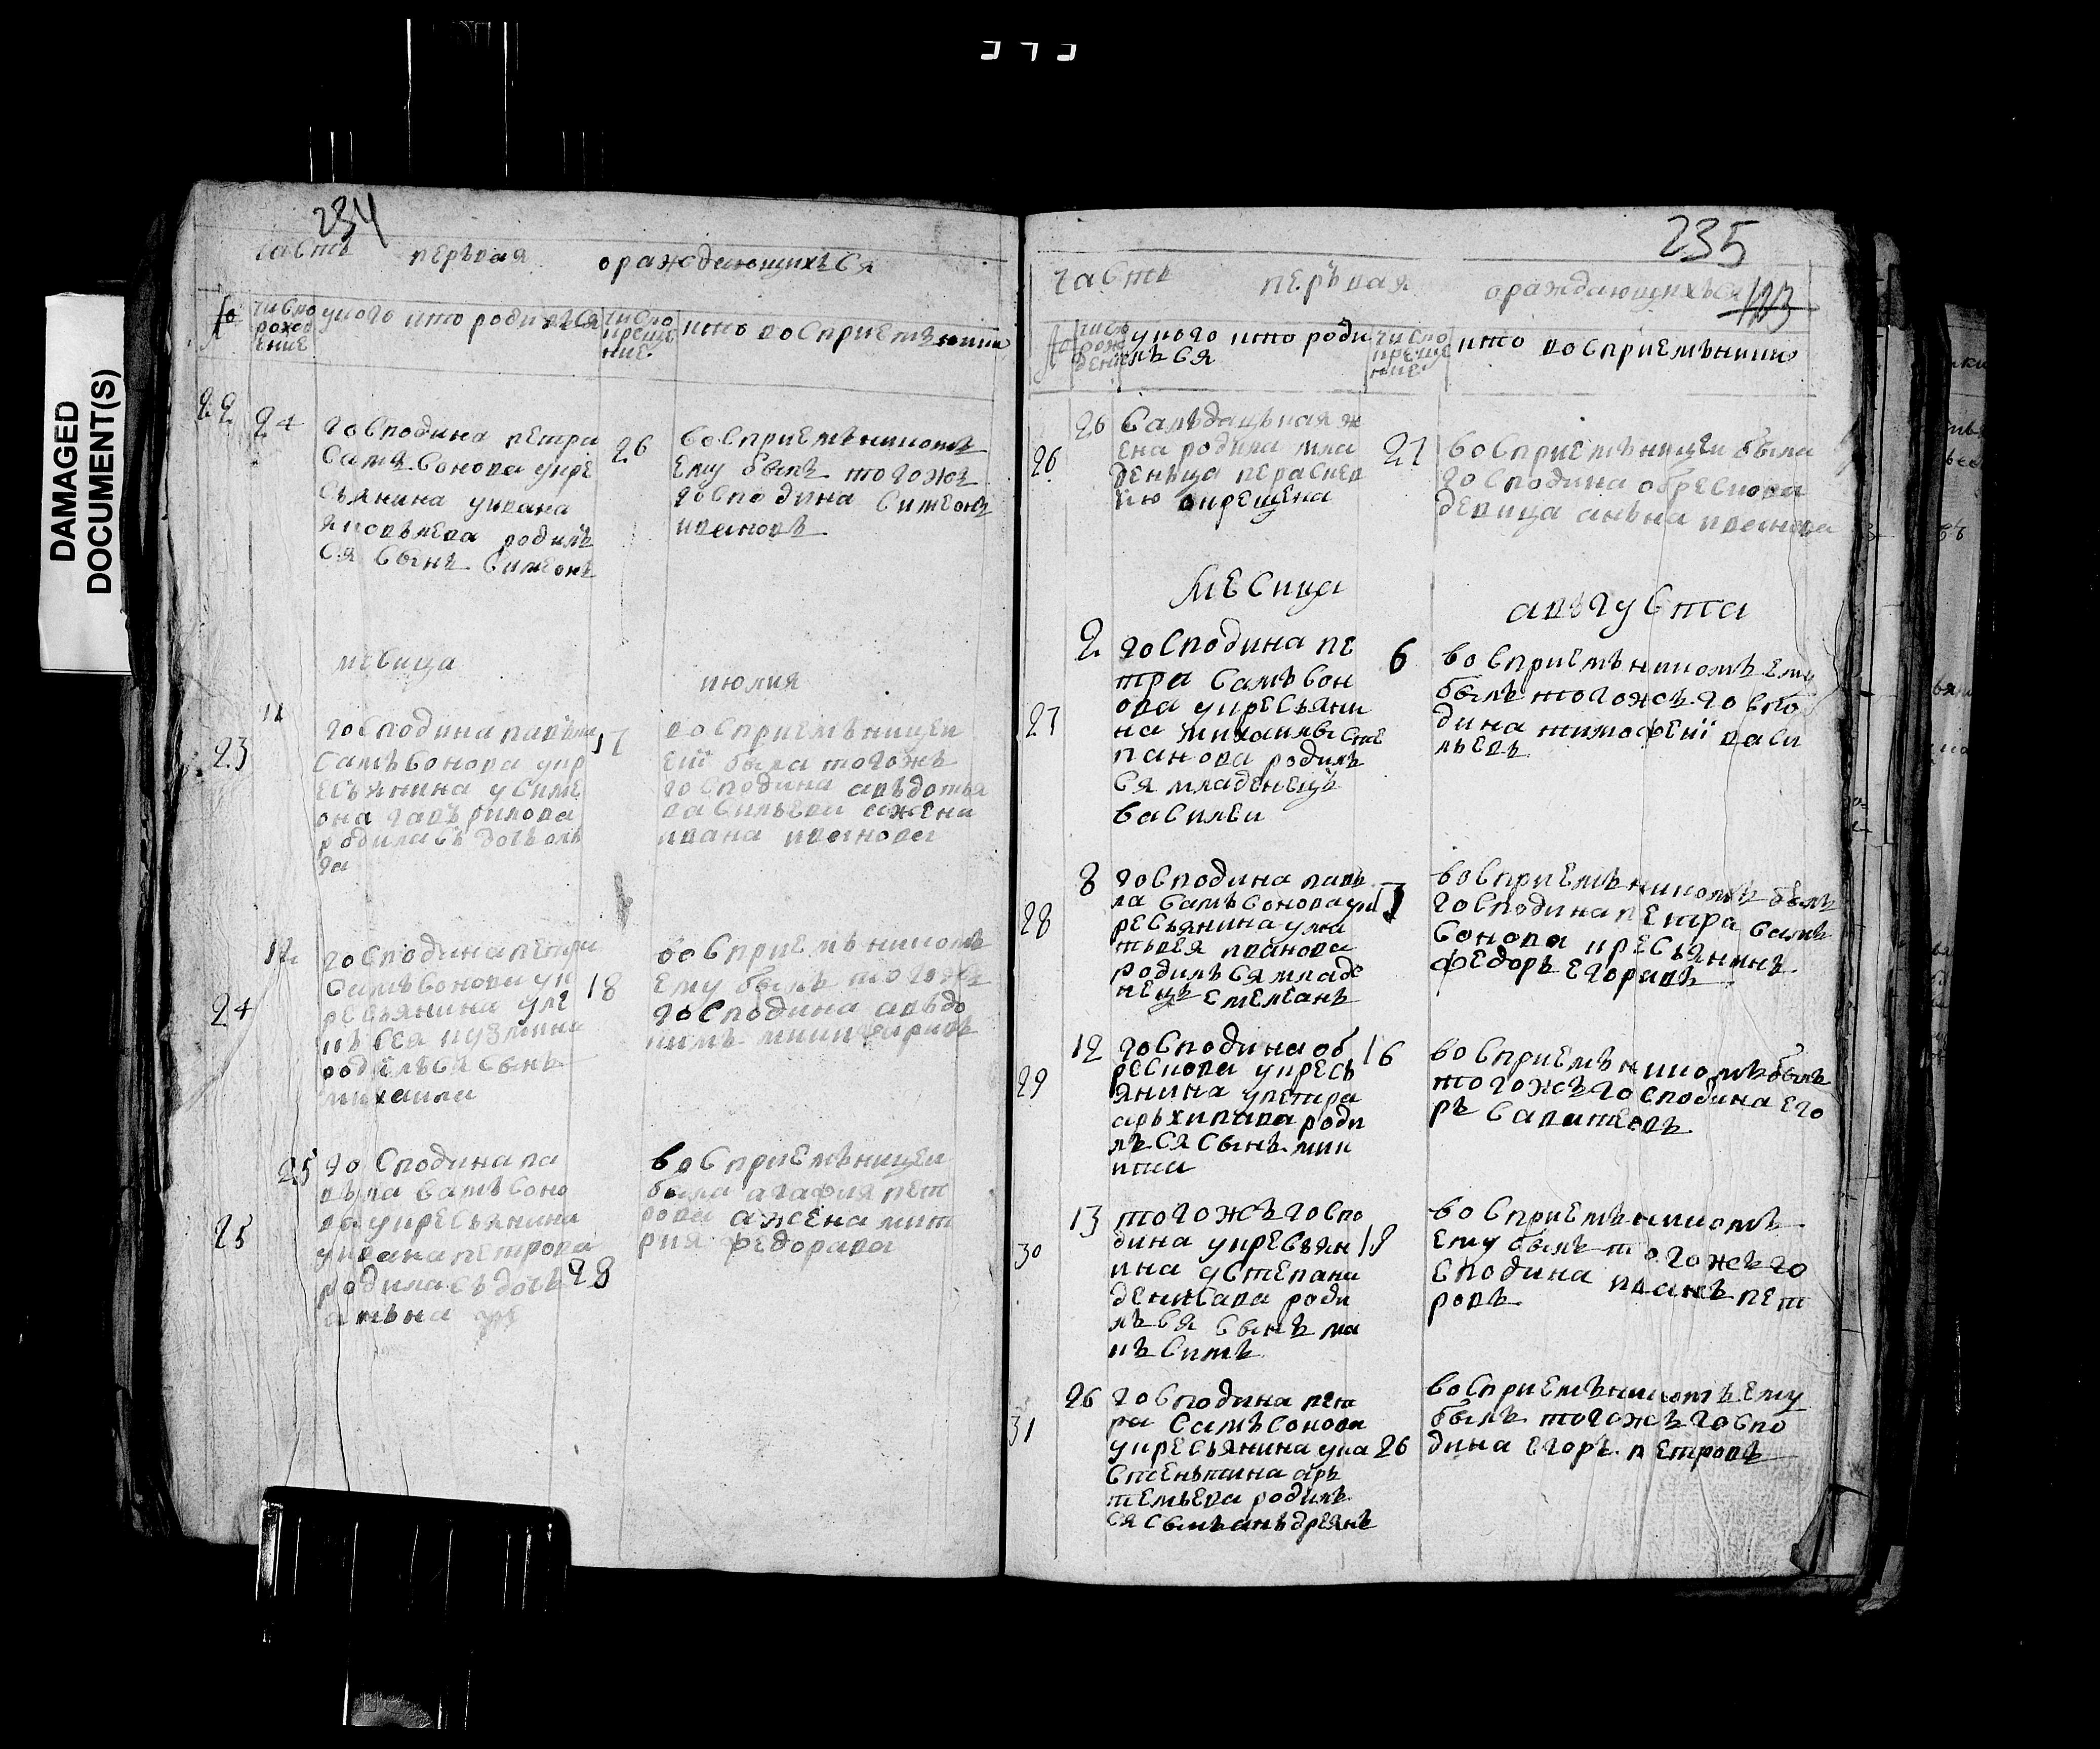 DAMAGED
DOCUMENT(S)
234
часть перъвая ораждающихъся
число рожд ение
укого кто родился
число креще ние
кто восприемъники
22
24
господина петра
самъсонова укре
сьянина уивана
яковълева родилъ
ся сынъ симеонъ
26
восприемъникомъ
ему былъ тогожъ
господина симеонъ
ивановъ
месица июлия
23
11
господина павъла
самъсонова укр
есьянина усиме
она гавърилова
родиласъ дочь олъ
га
17
восприемъницеи
ей была тогожъ
господина авъдотья
васильева жена
ивана иванова
24
12
господина петра
самъсонова ук
ресьянина уле
родилъся сынъ
михаила
18
восприемъникомъ
ему былъ тогожъ
господина авъдо
кимъ
25
25
господина па
въла самъсоно
ва укресьянина
уивана петрова
родиласъ дочь
анъна
28
восприемъницеи
была агафия пет
рова жена мит
рия федорава
235
103
часть перъвая ораждающихъся
число рож дени
укого кто роди
лъся
число креще ние
кто восприемъники
26
26
салъдацъкая ж
ена родила мла
денъца
окрещена
27
восприемъницеи была
господина обрескова
девица анъна иванова
месица авъгуста
27
2
господина пе
тра самъсон
ова укресьяни
на михаилы сте
панова родилъ
ся младенецъ
василеи
6
восприемъникомъ ему
былъ тогожъ госпо
дина тимофей васи
льевъ
28
8
господина павъ
ла самъсонова ук
ресьянина ума
тьвея иванова
родилъся младе
нецъ емелеанъ
восприемъникомъ былъ
господина петра самъ
сонова кресьянинъ
федоръ егоравъ
29
12
господина об
рескова укресь
янина упетра
аръхипава роди
лъся сынъ ники
та
16
восприемъникомъ былъ
тогожъ господина его
ръ савитеовъ
30
13
тогожъ госпо
дина укресьян
ина устепана
денисава роди
лъся сынъ ма
късимъ
18
восприемъникомъ
ему былъ тогожъ го
сподина иванъ пет
ровъ
31
26
господина пет
ра самъсонова
укресьянина ука
стенътина аръ
темьева родилъ
ся сынъ анъдреянъ
26
восприемъникомъ ему
былъ тогожъ госпо
дина егоръ петровъ